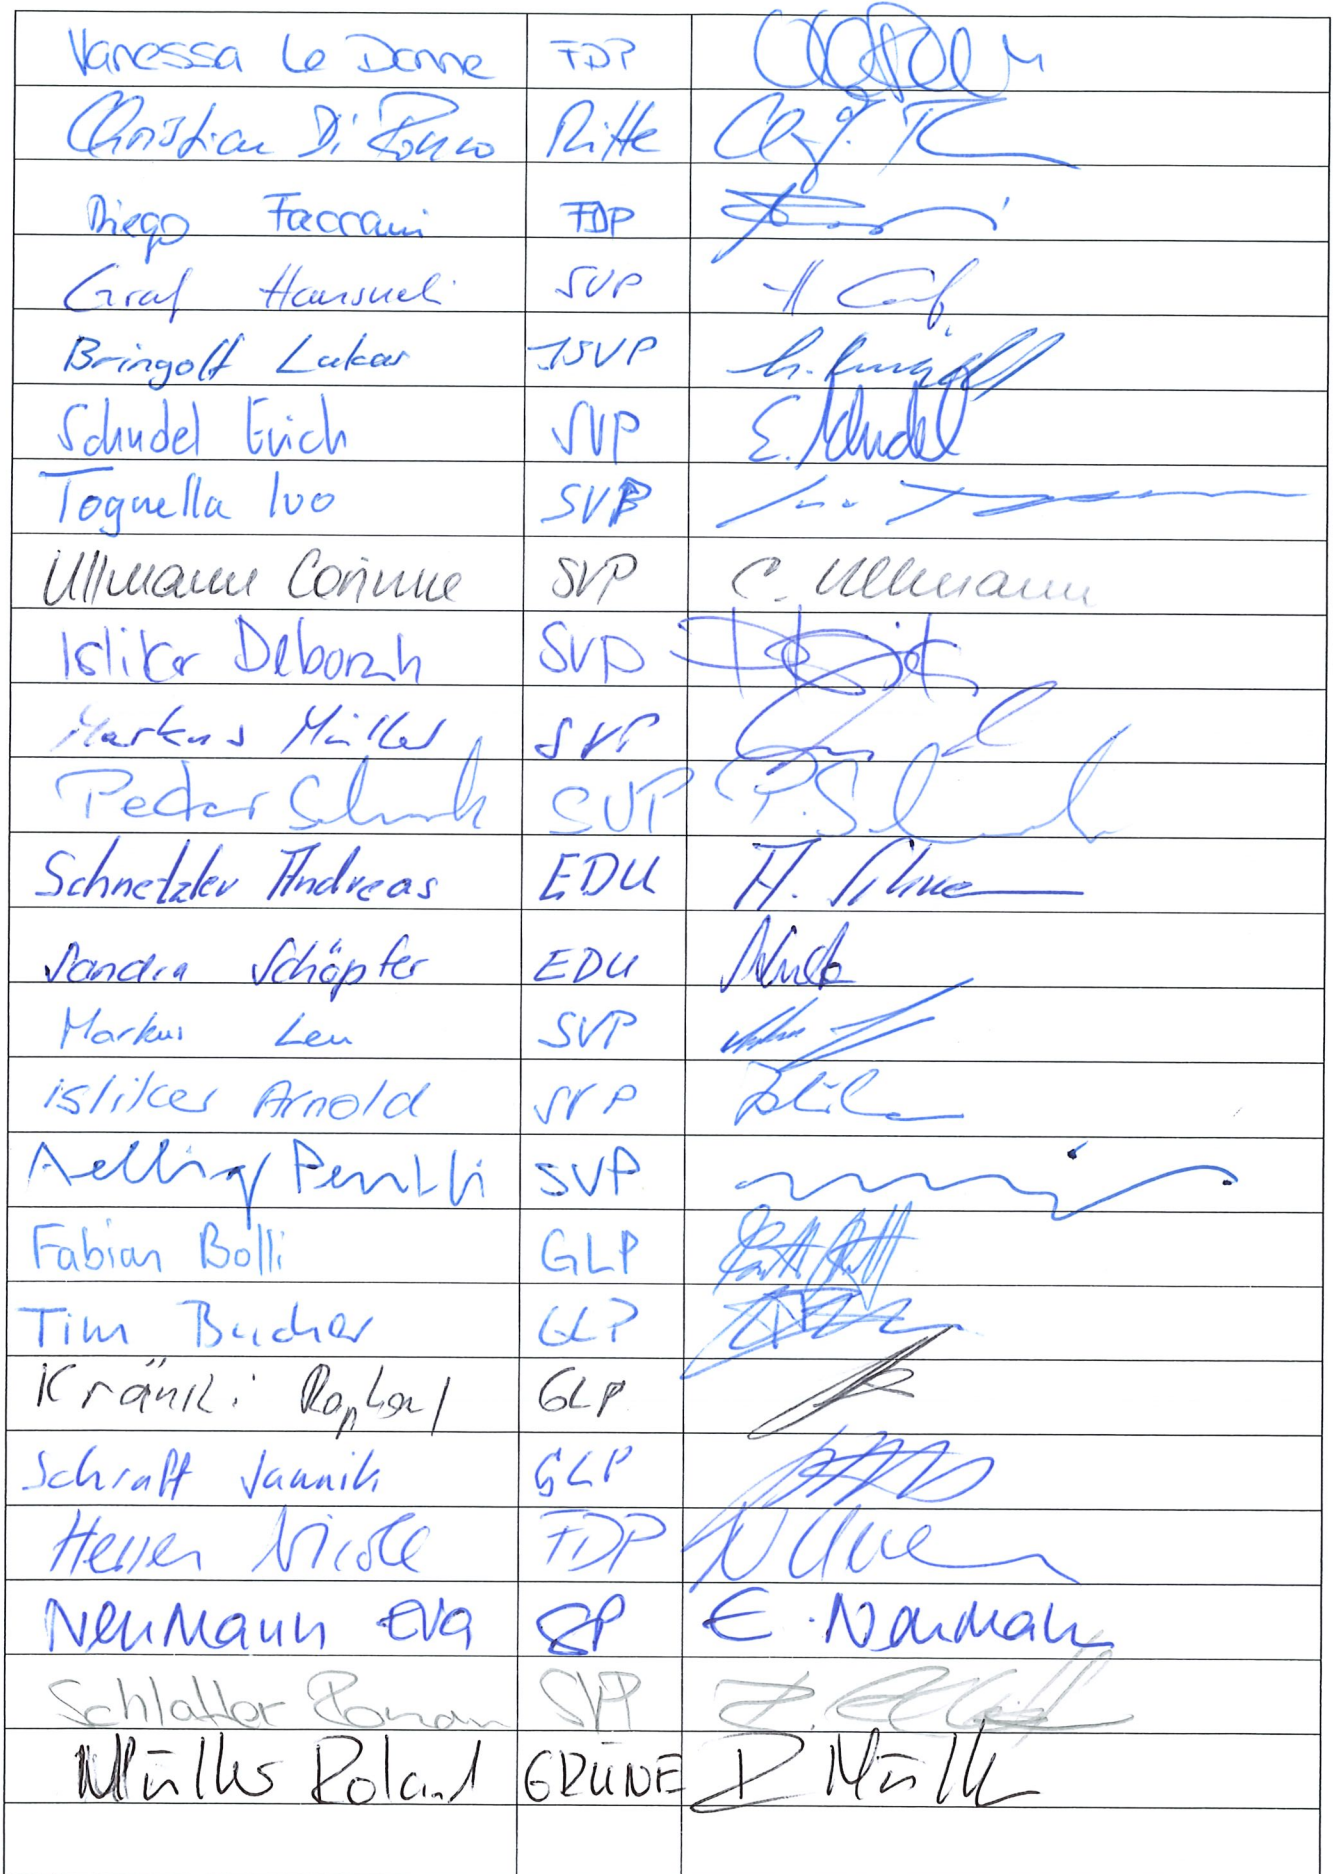 Vanessa Le Donne FDP
Christian Di Ronco Mitte
Diego Faccani FDP
Graf Hansueli SVP H Graf
Bringolf Lukas JSVP L. Bringolf
Schudel Erich SVP E. Schudel
Tognella Ivo SVP
Ullmann Corinne SVP C. Ullmann
Isliker Deborah SVP
Markus Müller SVP
Peter Scheck SVP P. Scheck
Schnetzler Andreas EDU A. Schne
Sandra Schöpfer EDU
Markus Leu SVP
isliker Arnold SVP
Aellig Pentti SVP
Fabian Bolli GLP
Tim Bucher GLP
Kränzli Raphael GLP
Schraff Jannik GLP
Herren Nicole FDP
Neumann Eva SP E. Neumann
Schlatter Roman SVP
Müller Roland GRÜNE R Müller